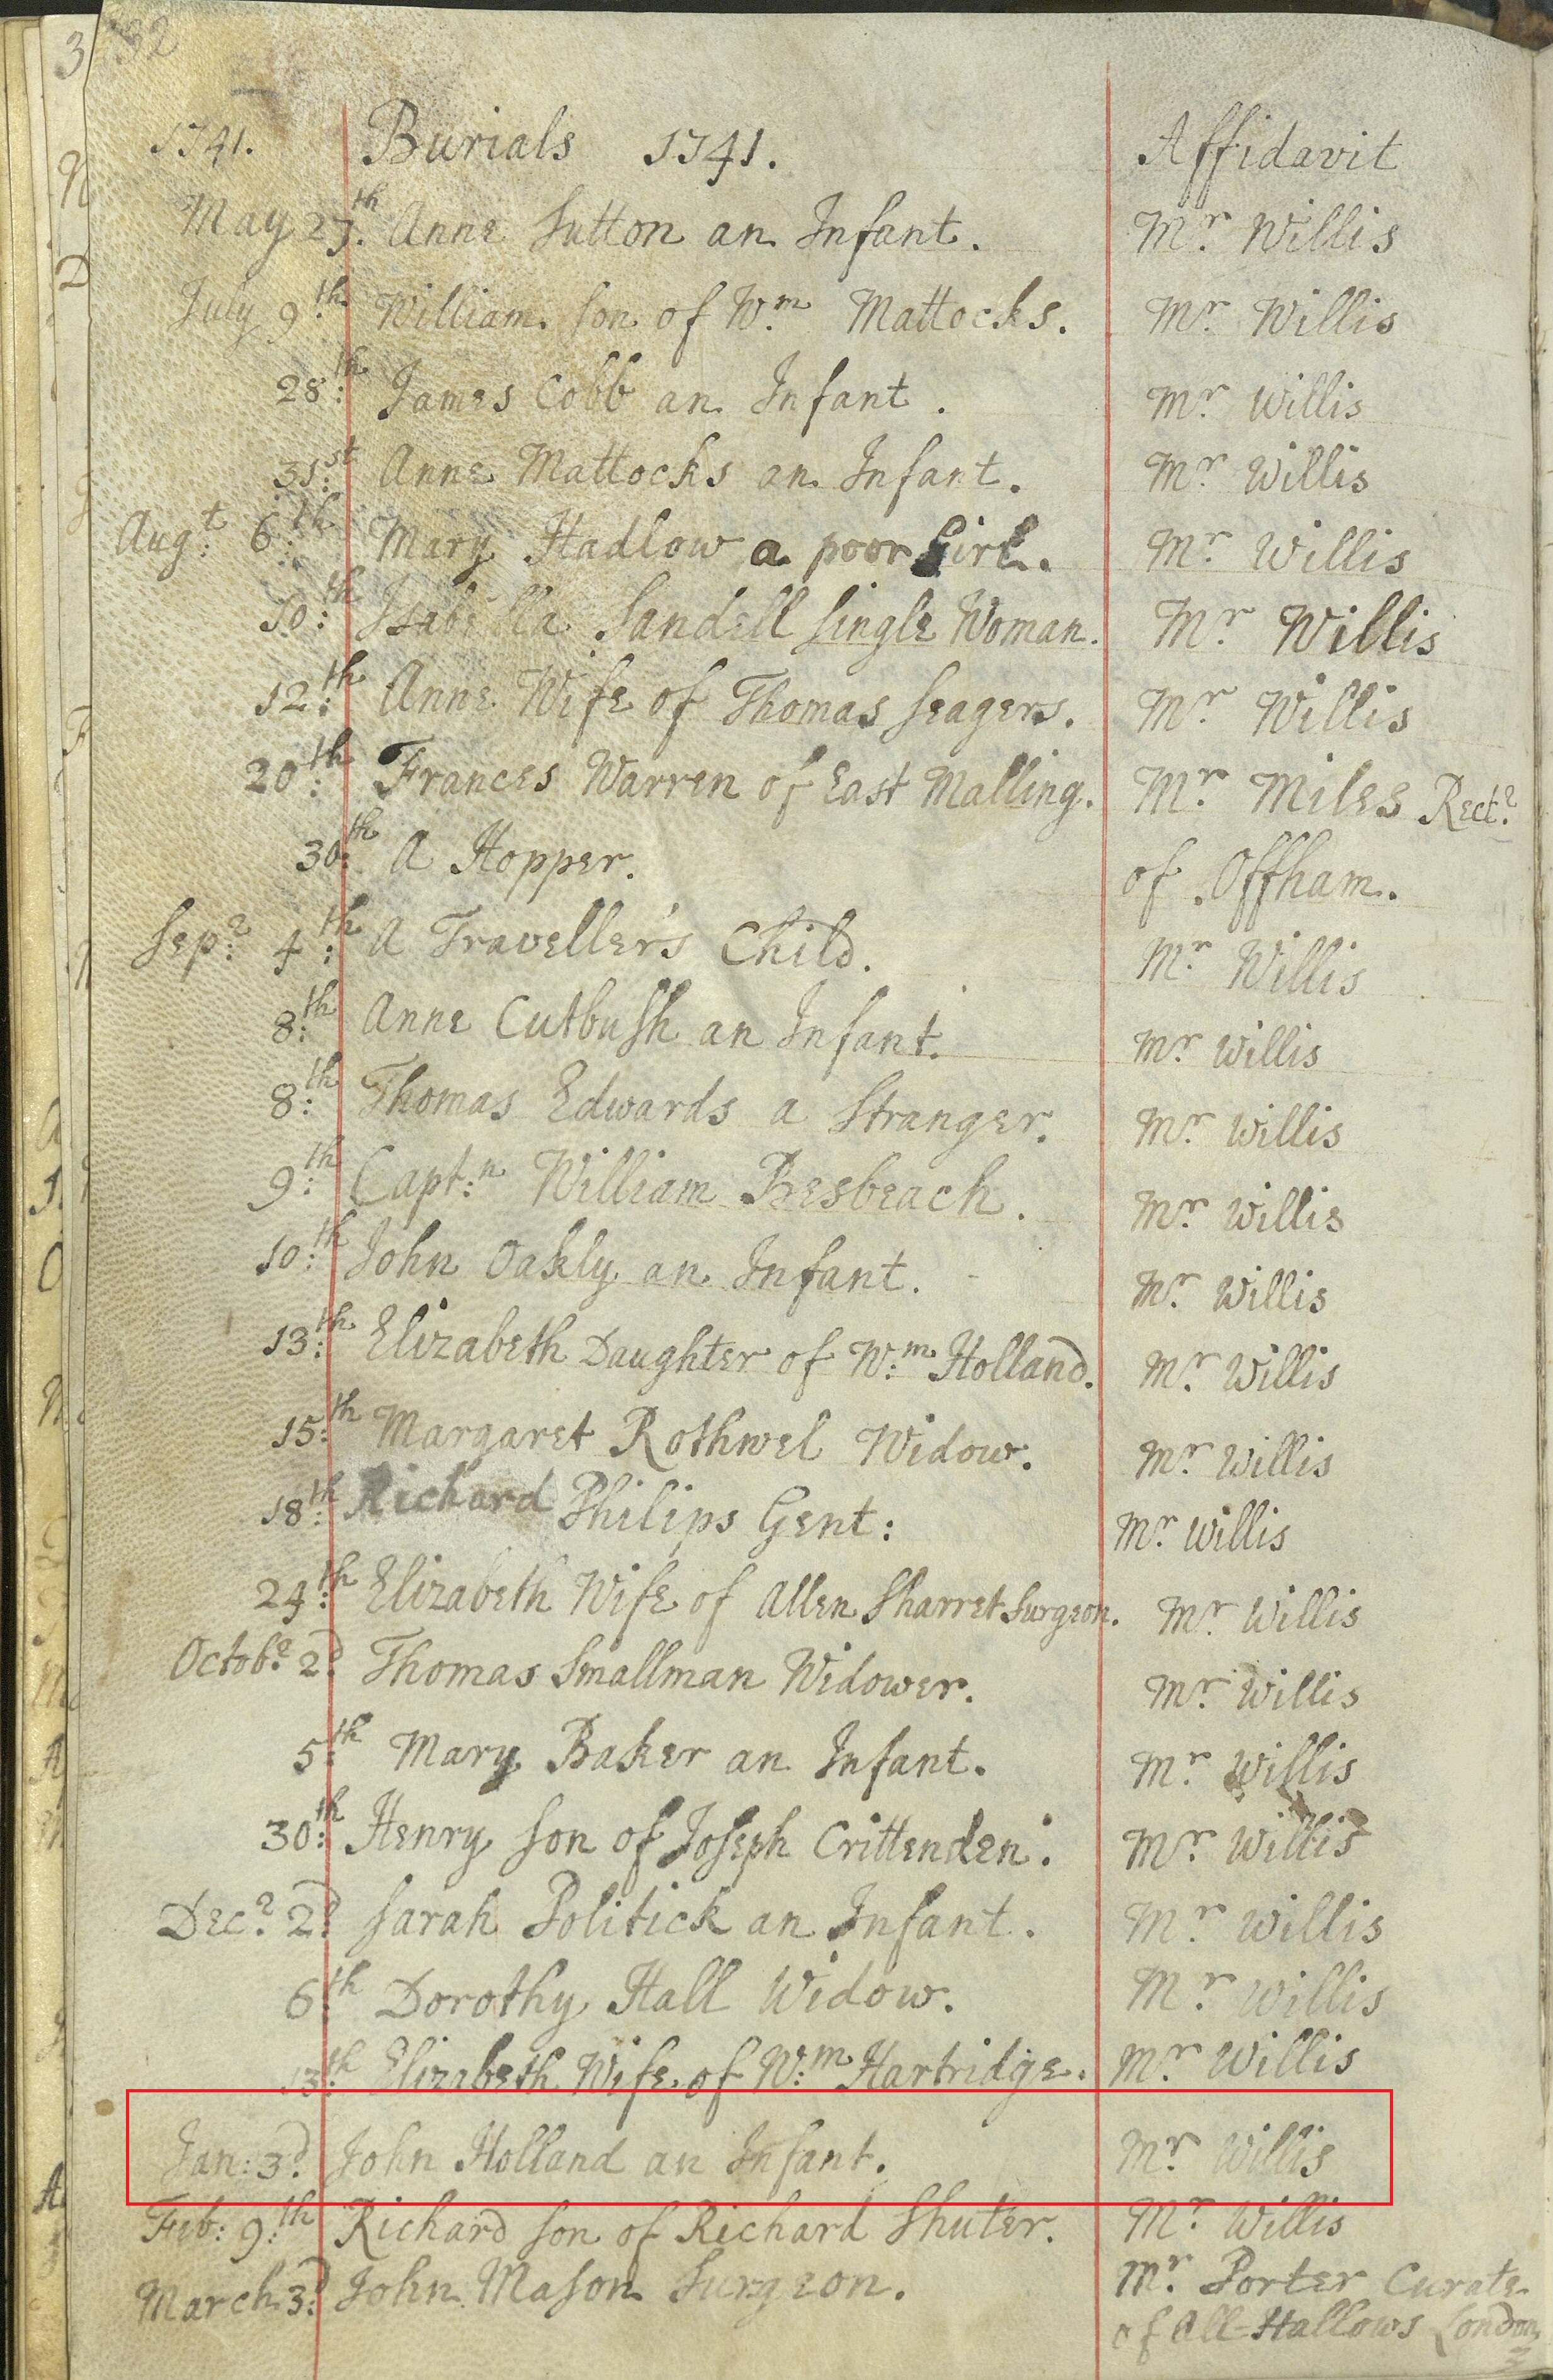 32
1741. Burials 1741. Affidavit
May 27th. Anne Sutton an Infant. Mr. Willis
July 9th William son of Wm. Mattocks. Mr. Willis
28th: James Cobb an Infant. Mr. Willis
31st: Anne Mattocks an Infant. Mr. Willis
Augt: 6th: Mary Hadlow a poor Girl. Mr. Willis
10th: Isabella Sandell single Woman. Mr. Willis
12th: Anne Wife of Thomas Seagers. Mr. Willis
20th: Frances Warren of East Malling. Mr. Miles Rectr.
30th: A Hopper. of Offham.
Sepr: 4th: A Traveller's Child. Mr. Willis
8th: Anne Cutbush an Infant. Mr. Willis
8th: Thomas Edwards a Stranger. Mr. Willis
9th: Capt:n William Besbeach. Mr. Willis
10th: John Oakly an Infant. Mr. Willis
13th: Elizabeth Daughter of W:m Holland. Mr. Willis
15th: Margaret Rothwel Widow. Mr. Willis
18th: Richard Philips Gent: Mr. Willis
24th: Elizabeth Wife of Allen Sharret Surgeon. Mr. Willis
Octobr. 2d: Thomas Smallman Widower. Mr. Willis
5th: Mary Baker an Infant. Mr. Willis
30th: Henry son of Joseph Crittenden. Mr. Willis
Decr: 2d: Sarah Politick an Infant. Mr. Willis
6th: Dorothy Hall Widow. Mr. Willis
13th: Elizabeth Wife of W:m Hartridge. Mr. Willis
Jan: 3d: John Holland an Infant. Mr. Willis
Feb: 9:th Richard son of Richard Shuter. Mr. Willis
March 3d: John Mason Surgeon. Mr. Porter Curate
of All-Hallows London